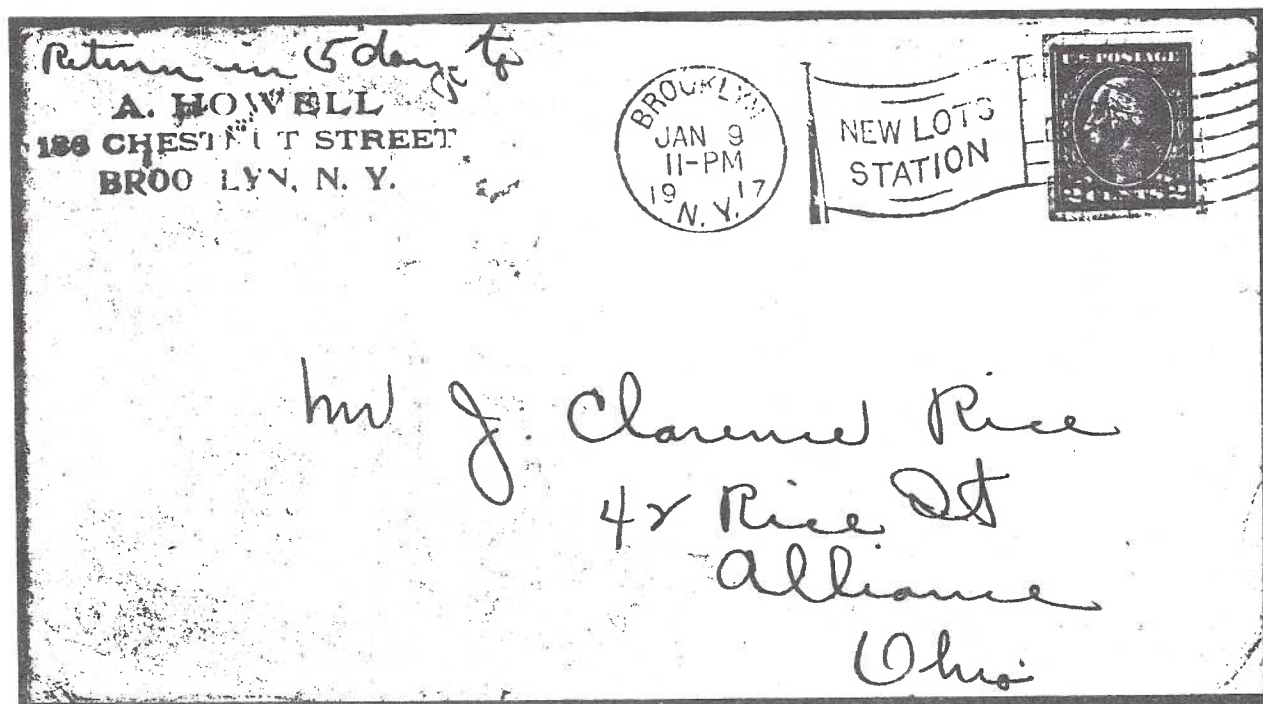 Return in 5 days to
A. HOWELL
186 CHESTNUT STREET
BROOLYN, N. Y.
BROOKLYN
JAN 9
11-PM
1917
N. Y.
NEW LOTS
STATION
U.S. POSTAGE
2 CENTS 2
Mr J. Clarence Rice
42 Rice St
Alliance
Ohio